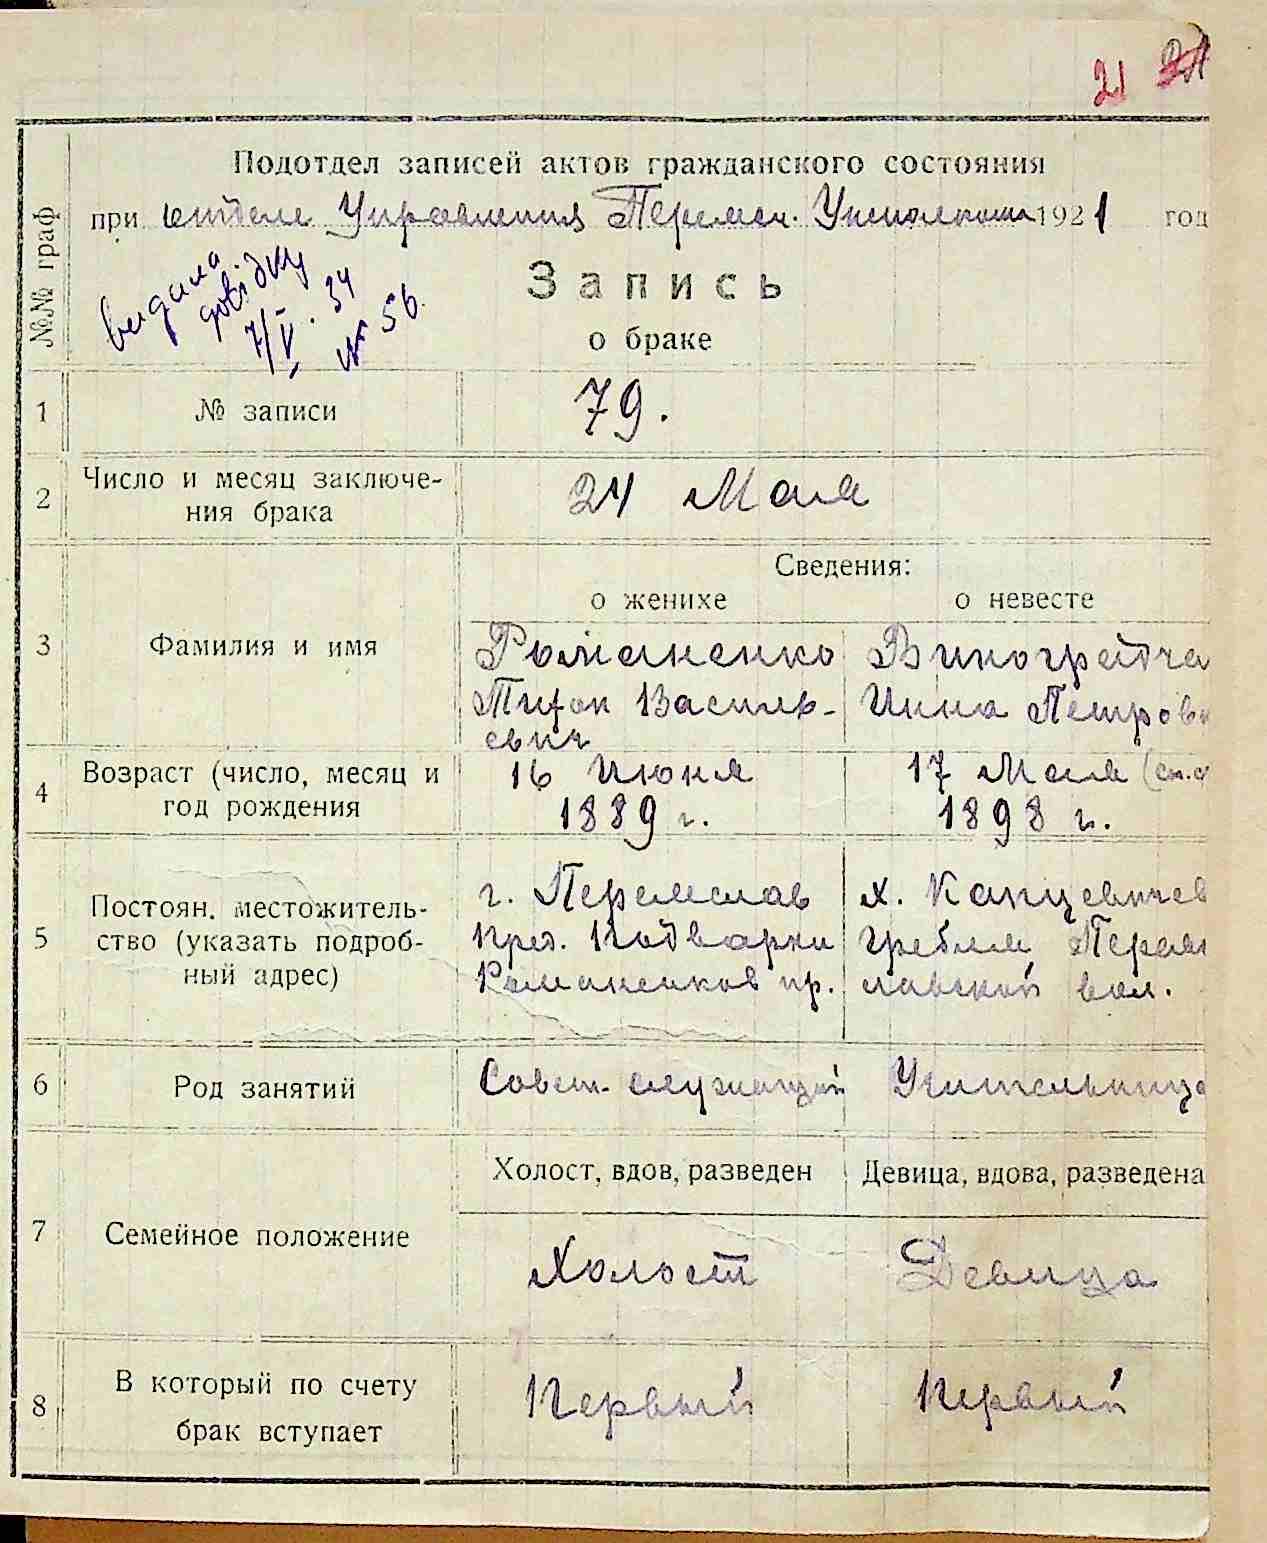 21 31
Подотдел записей актов гражданского состояния
при отделе Управления Переясл. Уисполкома 1921 год
№№ граф
видана
довідку
7/V. 34
№ 56.
Запись
о браке
1 № записи 79.
2 Число и месяц заключе-
ния брака 24 Мая
Сведения:
о женихе о невесте
3 Фамилия и имя Романенко Виногра
Тихон Василь- Инна Петров
евич
4 Возраст (число, месяц и 16 Июня 17 Мая (ст.с
год рождения 1889 г. 1898 г.
5 Постоян. местожитель- г. Переяслав х. Канцевичев
ство (указать подроб- пред. Подварки гребля, Перея
ный адрес) Романенков пр. славской вол.
6 Род занятий Совет. служащий Учительница
Холост, вдов, разведен Девица, вдова, разведена
7 Семейное положение Холост Девица
8 В который по счету Первый Первый
брак вступает